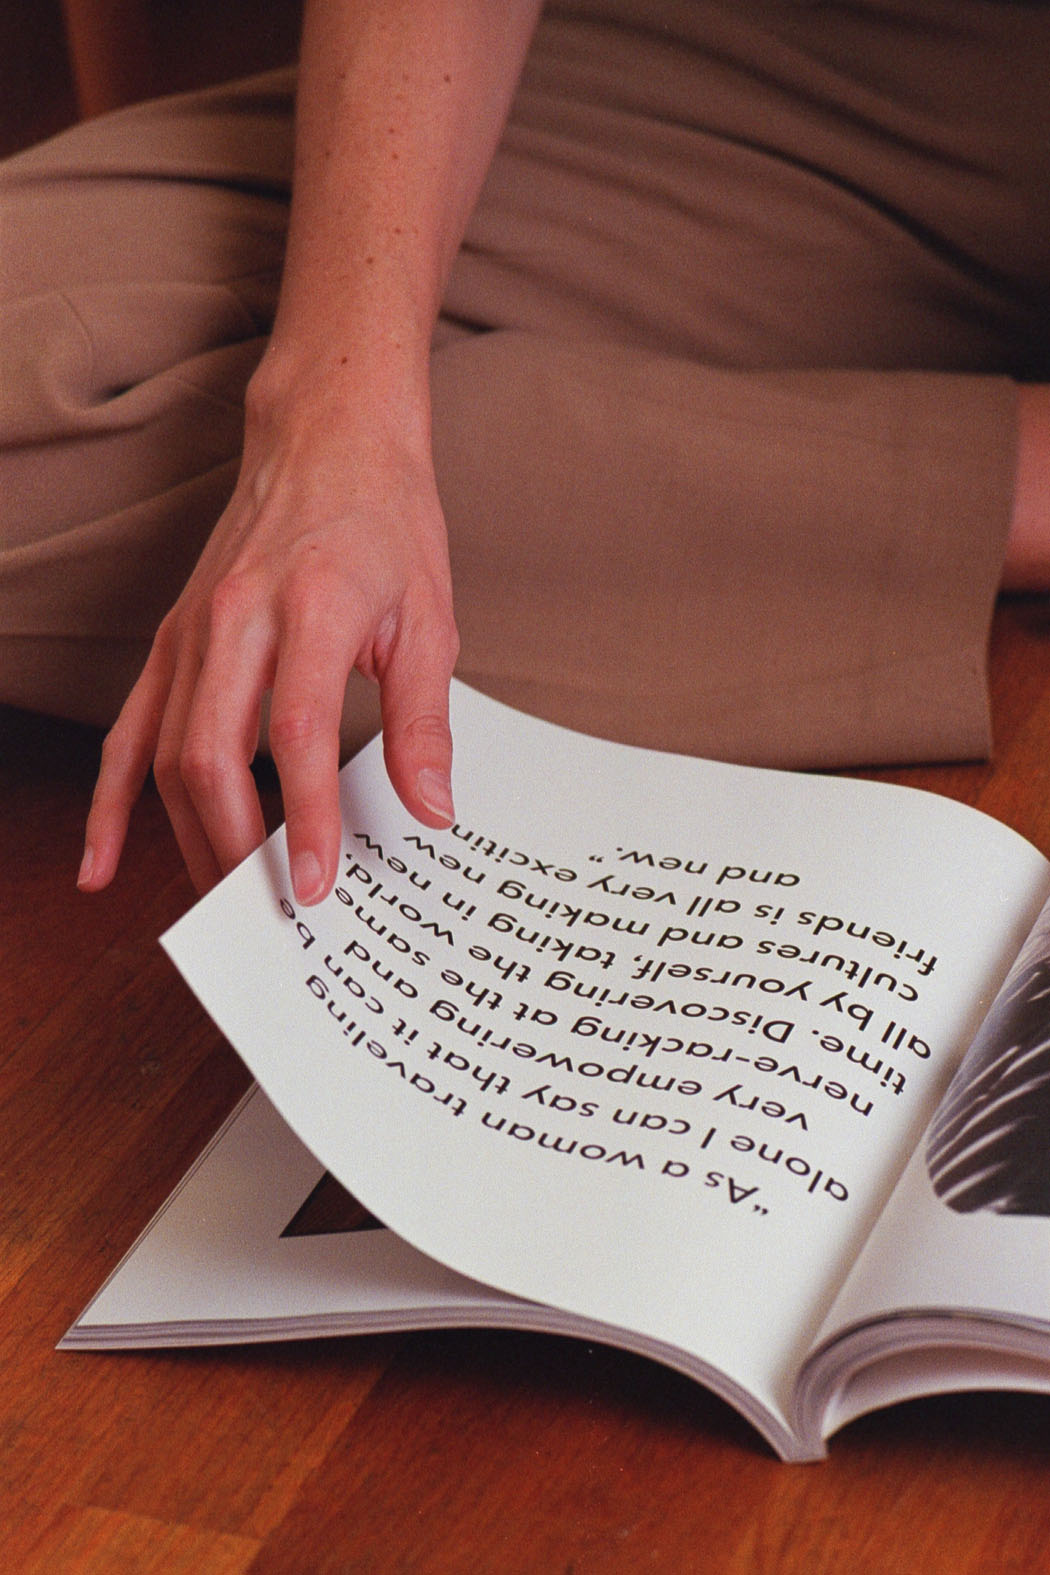 “As a woman traveling
alone I can say that it can be
very empowering and
nerve-racking at the same
time. Discovering the world,
all by yourself, taking in new
cultures and making new
friends is all very excitin
and new.”